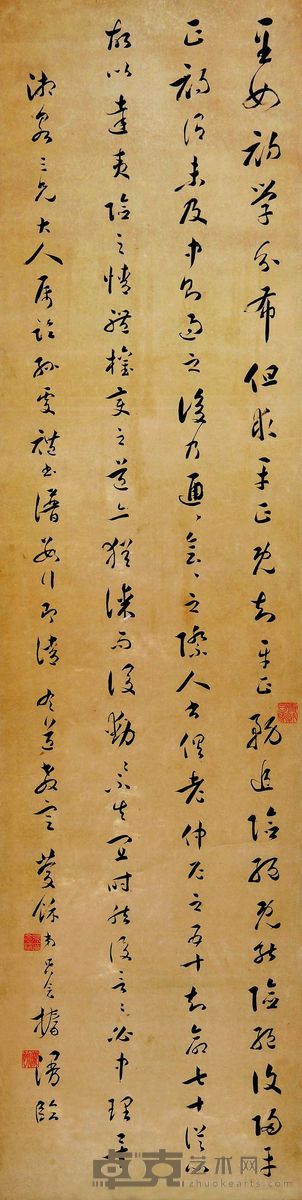 至如初学分布但求平正既知平正务追险绝既能险绝复归平
正初谓未及中则过之后乃通〻会〻之际人书俱老仲尼云五十知命七十从心
故以达夷险之情体权变之道亦犹谋而后动〻不失宜时然后言〻必中理矣
三兄大人属临孙虔礼书谱数行即请
卓克艺术网
www.zhuokearts.com